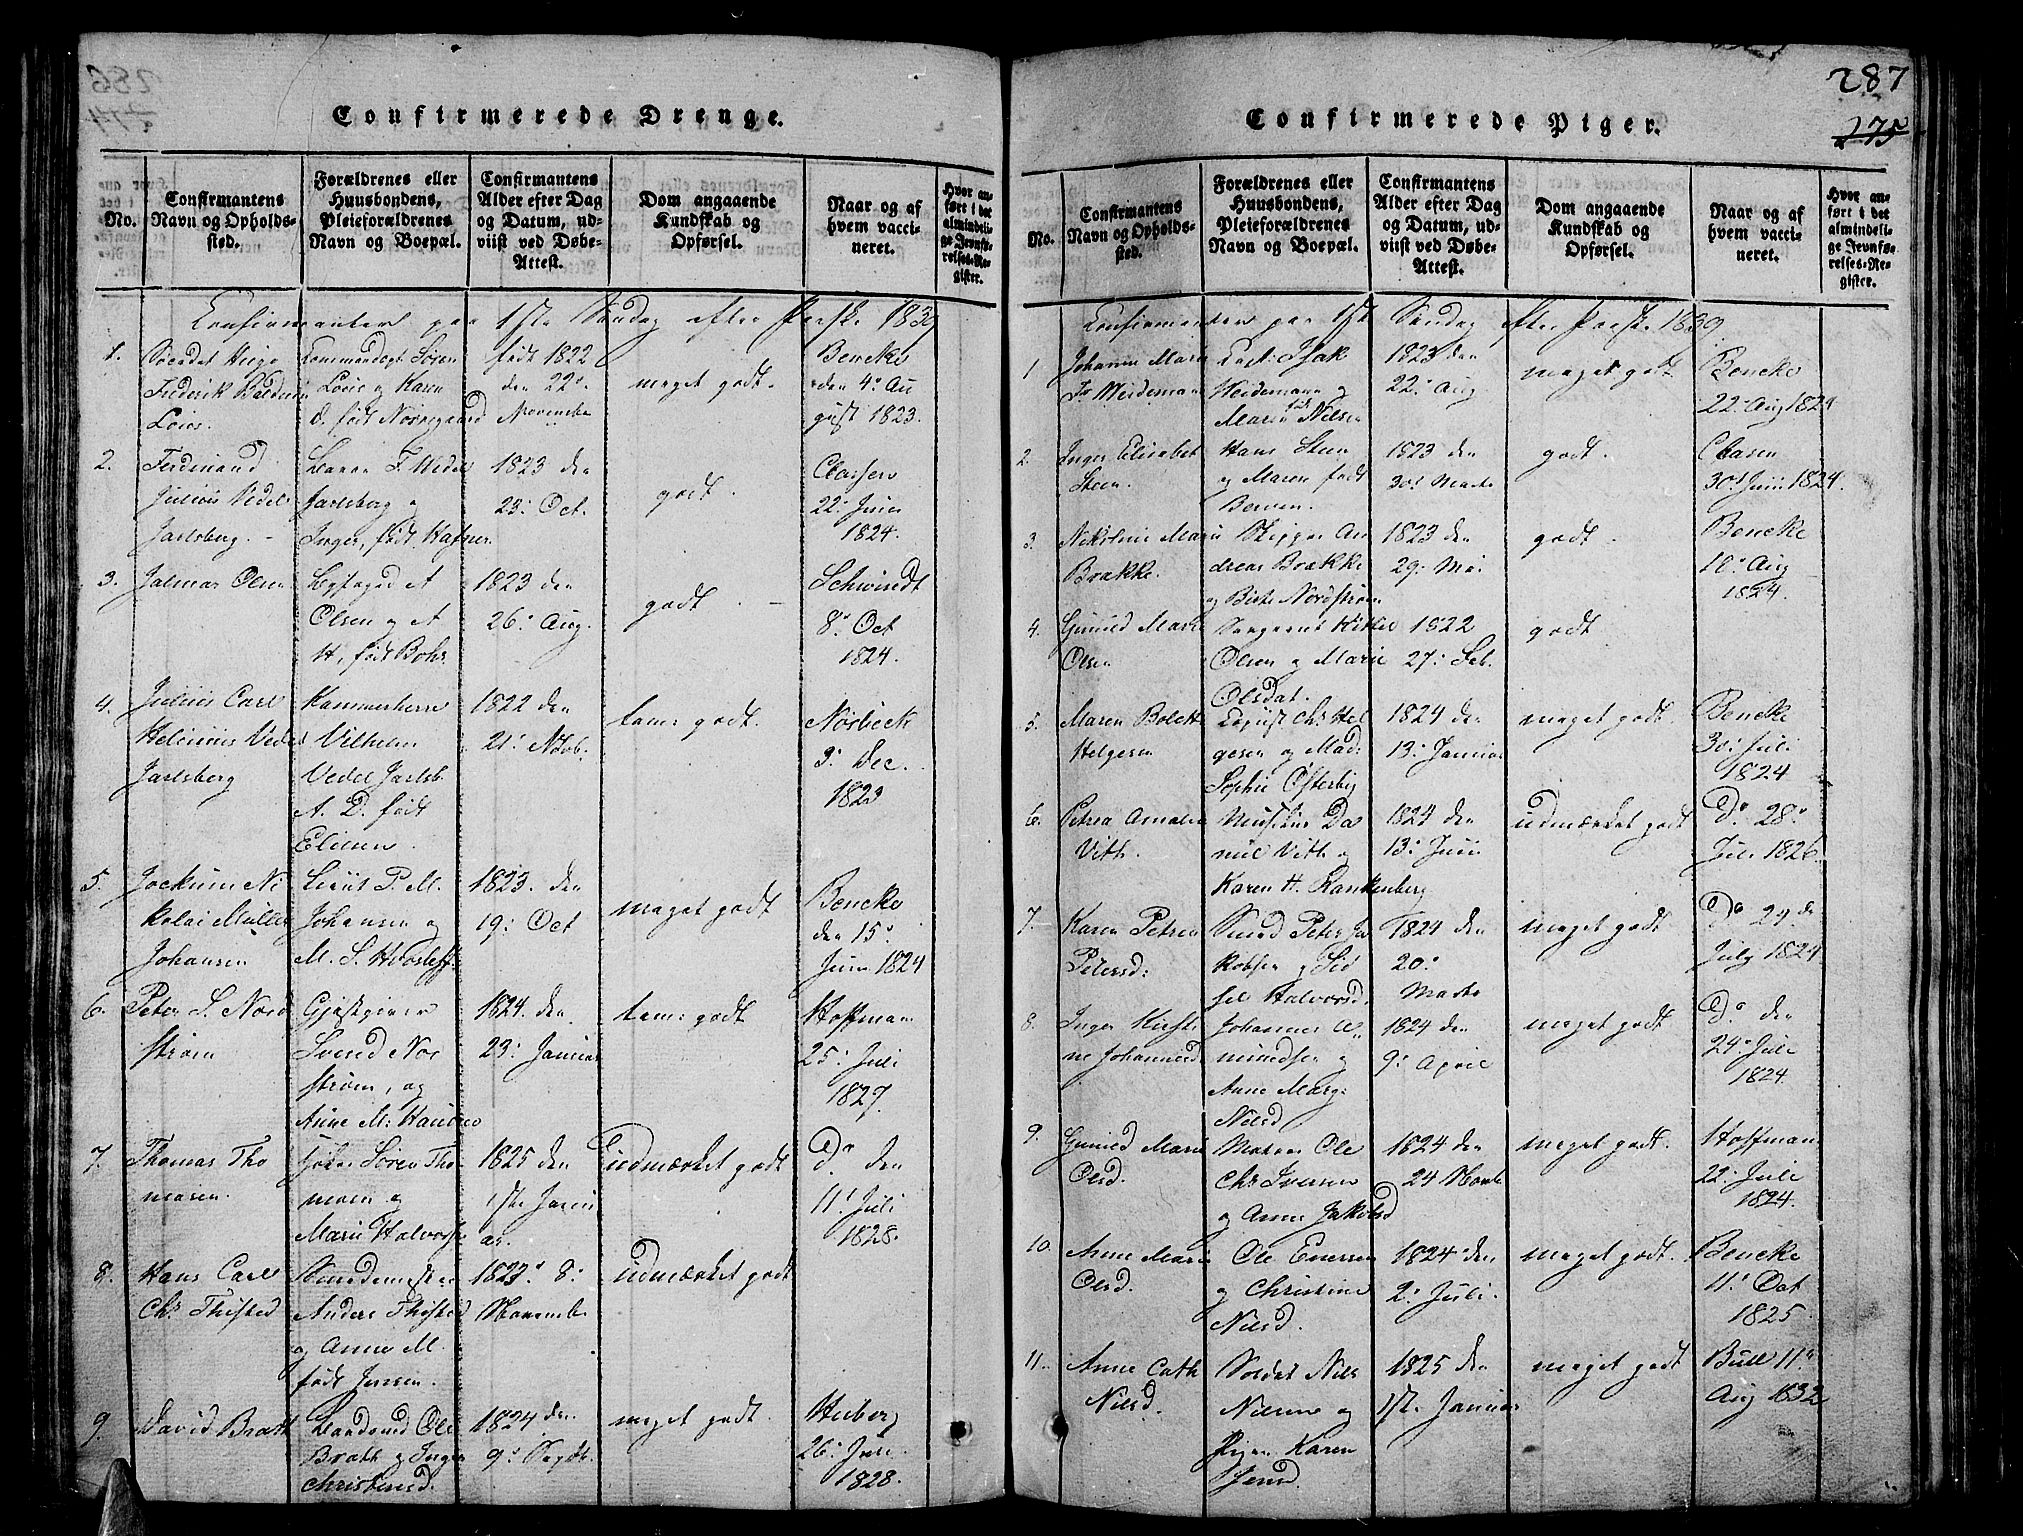 Confirmerede Drenge.
No.
Confirmantens
Navn og Opholds-
sted.
Forældrenes eller
Huusbondens,
Pleieforældrenes
Navn og Boepæl.
Confirmantens
Alder efter Dag
og Datum, ud-
viist ved Døbe-
Attest.
Dom angaaende
Kundskab og
Opførsel.
Naar og af
hvem vacci-
neret.
Hvor an-
ført i det
almindeli-
ge Jevnfø-
relses-Re-
gister.
Confirmanter paa 1ste Søndag efter Paaske 1839
1.
Frederik
Løvos.
Søren
og Karen
D. født Norregaard
født 1822
den 22de
November
meget godt.
Bencke
den 4de Au
gust 1823.
2.
Ferdinand
Julius Vedel
Jarlsberg.
Baron F. Wedel
Jarlsberg og
Inger, født Hafner
1823 den
23: Oct.
godt.
Classen
22: Juni
1824.
3.
Jalmar Olsen
A
Olsen og A
H, født Bohr
1823 den
26: Aug.
godt.
Schwindt
8: Oct
1824.
4.
Julius Carl
Vedel
Jarlsberg
Kammerherre
Vilhelm
Vedel Jarlsb
A. D. født
Eliesen
1822 den
21: Novb.
tem: godt.
Norbeck
3: Dec.
1823
5.
Jockum Ni
kolai Müller
Johansen
Lieut P. M.
Johansen og
M. S.
1823. den
19: Oct
meget godt
Bencke
den 15de
Juni 1824
6.
Peter S. Nord
strøm
Gjæstgiver
Svend Nor
strøm, og
Anne M: Hansen
1824. den
23: Januar
tem: godt
Hoffman
25: Juli
1827.
7.
Thomas Tho
masen.
Søren Tho
masen og
Marie Halvors
1825 den
1ste Janu
ar.
udmærket godt
Do den
11: Juli
1828.
8.
Hans Carl
Chr Thisted
Smedemester
Anders Thisted
og Anne M.
født Jensen.
1823. 8:
November
udmærket godt
9.
David Brath
Ole
Brath og Inger
Christensd.
1824. den
9: Septbr.
meget godt.
Huberg
26: Juli.
1828.
287
275
Confirmerede Piger.
No.
Confirmantens
Navn og Opholds-
sted.
Forældrenes eller
Huusbondens,
Pleieforældrenes
Navn og Boepæl.
Confirmantens
Alder efter Dag
og Datum, ud-
viist ved Døbe-
Attest.
Dom angaaende
Kundskab og
Opførsel.
Naar og af
hvem vacci-
neret.
Hvor an-
ført i det
almindeli-
ge Jevnfø-
relses-Re-
gister.
Confirmanter paa 1ste Søndag efter Paaske 1839
1
Johanne Marie
Weideman
Isak
Weidemann og
Maren født Nilsen
1823 den
22: Aug
meget godt
Bencke
22: Aug 1824
2.
Inger Elisabet
Steen
Hans Steen
og Maren født
Berven.
1823 den
30: Marts
godt.
Clasen
30: Juni 1824.
3.
Nikoline Marie
Brakke.
Skipper An
dreas Brakke
og Birte Nordstrøm
1823 den
29: Mai
godt
Bencke
10: Aug
1824.
4.
Gunild Marie
Olsen
Sergeant Kittil
Olsen og Marie
Olsdat.
1822
27: Feb.
godt
5.
Maren Bolett
Helgesen
Chr. Hel
gesen og Mad:
Sophie Østerby
1824 den
13: Januar
meget godt.
Bencke
30: Juli
1824
6.
Petrea Amalia
Vith.
Da
niel Vith og
Karen H. Rankenberg
1824 den
13: Juni
udmærket godt
Do 28:
Juli 1826.
7.
Karen Petrea
Petersd:
Smed Peter Ja
kobsen og Sid
sel Halvorsd.
1824 den
20:
Marts
meget godt
Do 24 de
July 1824
8.
Inger Kirsti
ne Johannesd.
Johannes A
mundsen og
Anne Marg:
Nilsd
1824 den
9: April
meget godt
Do den
24: Juli
1824.
9.
Gunild Marie
Olsd.
Matros Ole
Chr. Iversen
og Anne Jakobsd
1824 den
24 Marts
meget godt.
Hoffman
22: Juli
1824.
10.
Anne Marie
Olsd.
Ole Enersen
og Christine
Nilsd.
1824 den
2: Juli.
meget godt.
Bencke
11: Oct
1825.
11.
Anne Cath
Nilsd.
Soldat Nils
Nilsen og
Pigen Karen
Jensd.
1825 den
1ste Januar
meget godt
Bull 11te
Aug 1832